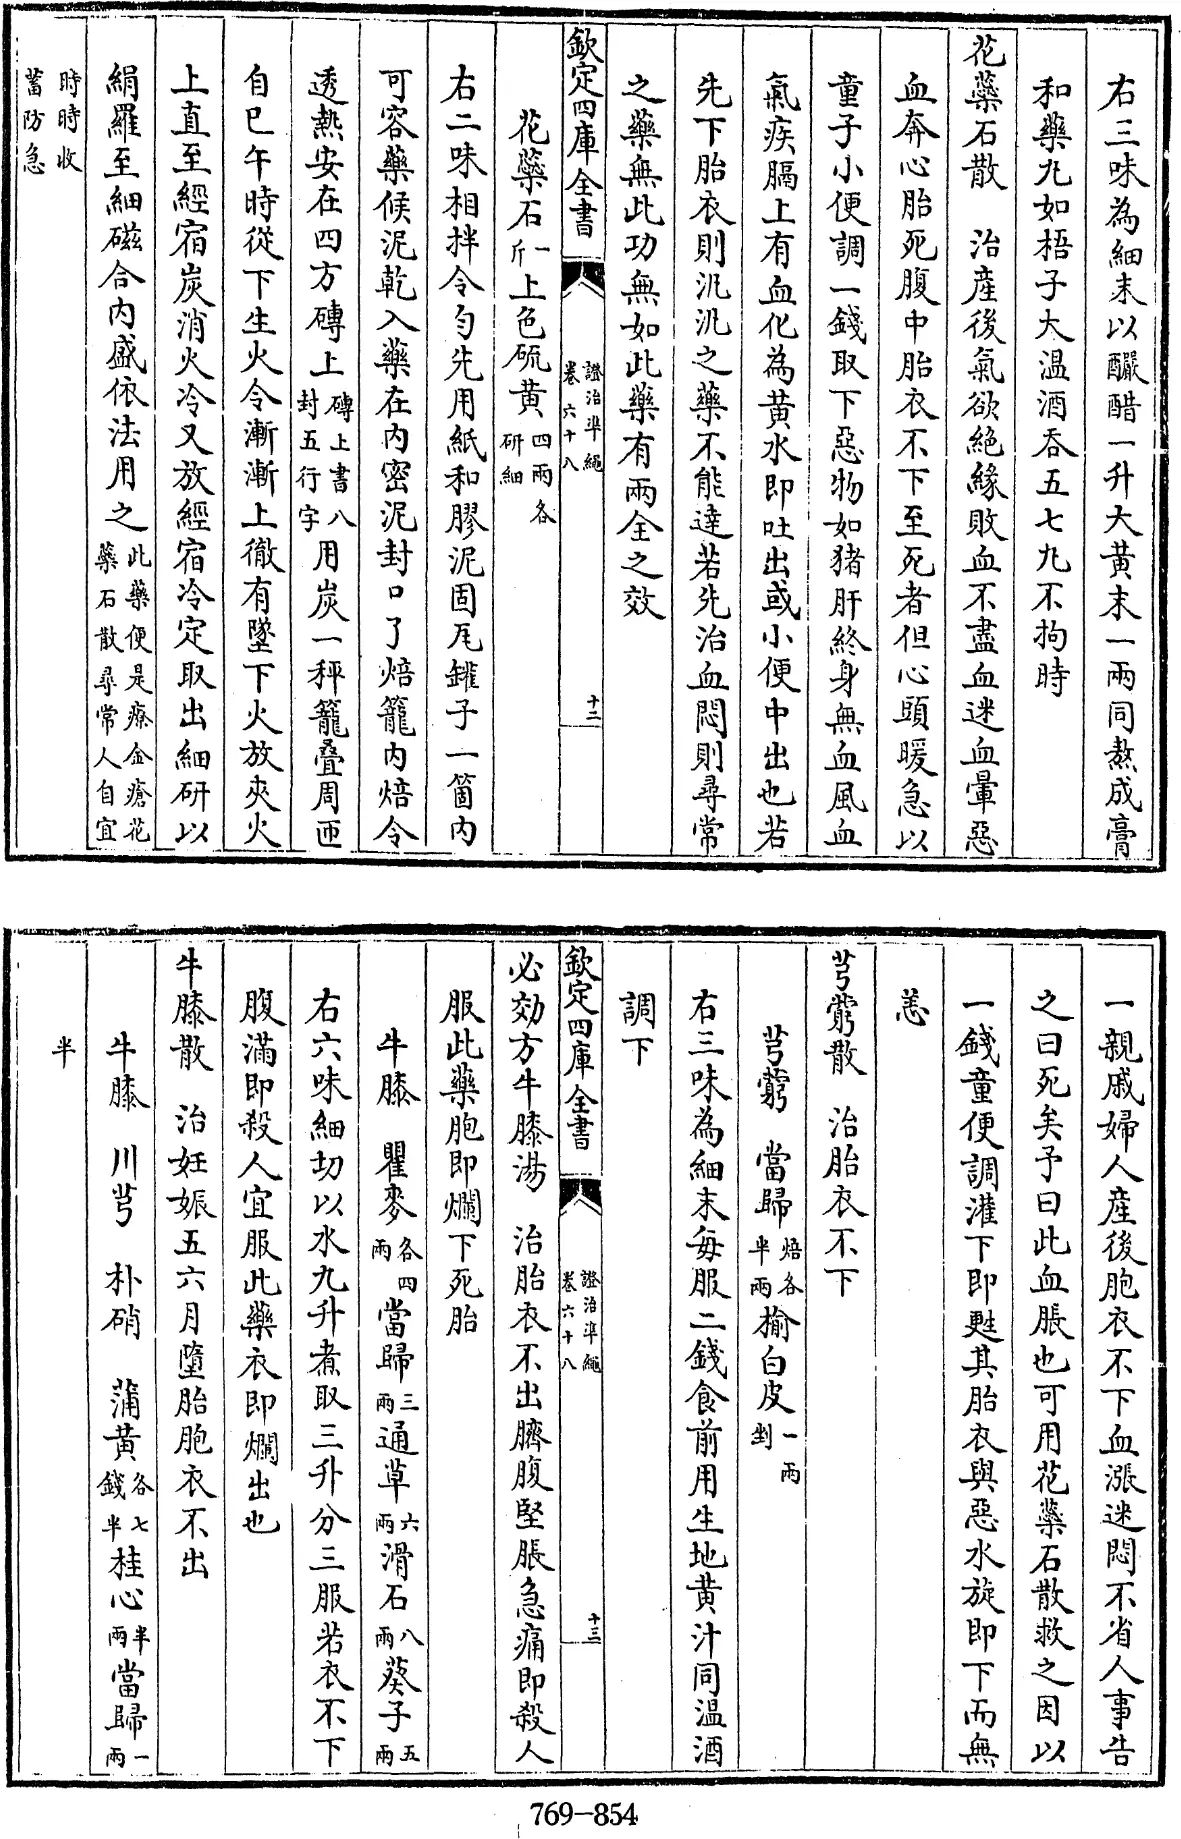 右三味為細末以釅醋一升大黃末一兩同熬成膏
和藥丸如梧子大温酒吞五七丸不拘時
花蘂石散　治産後氣欲絶緣敗血不盡血迷血暈惡
血奔心胎死腹中胎衣不下至死者但心頭暖急以
童子小便調一錢取下惡物如猪肝終身無血風血
氣疾膈上有血化為黃水即吐出或小便中出也若
先下胎衣則汎汎之藥不能達若先治血悶則尋常
之藥無此功無如此藥有兩全之效
欽定四庫全書
證治準繩
卷六十八
十二
花蘂石一斤上色硫黃四兩各研細
右二味相拌令勻先用紙和膠泥固瓦罐子一箇內
可容藥候泥乾入藥在內密泥封口了焙籠內焙令
透熱安在四方磚上磚上書八封五行字用炭一秤籠疊周匝
自巳午時從下生火令漸漸上徹有墜下火放夾火
上直至經宿炭消火冷又放經宿冷定取出細研以
絹羅至細磁合內盛依法用之此藥便是療金瘡花蘂石散尋常人自宜
時時收蓄防急
一親戚婦人産後胞衣不下血漲迷悶不省人事告
之曰死矣予曰此血脹也可用花藥石散救之因以
一錢童便調灌下即甦其胎衣與惡水旋即下而無
恙
芎藭散　治胎衣不下
芎藭　當歸焙各半兩榆白皮一兩剉
右三味為細末每服二錢食前用生地黃汁同温酒
調下
欽定四庫全書
證治準繩
卷六十八
十三
必効方牛膝湯　治胎衣不出臍腹堅脹急痛即殺人
服此藥胞即爛下死胎
牛膝　瞿麥各四兩當歸三兩通草六兩滑石八兩葵子五兩
右六味細切以水九升煮取三升分三服若衣不下
腹滿即殺人宜服此藥衣即爛出也
牛膝散　治妊娠五六月墮胎胞衣不出
牛膝　川芎　朴硝　蒲黃各七錢半桂心半兩當歸一兩
半
769-854